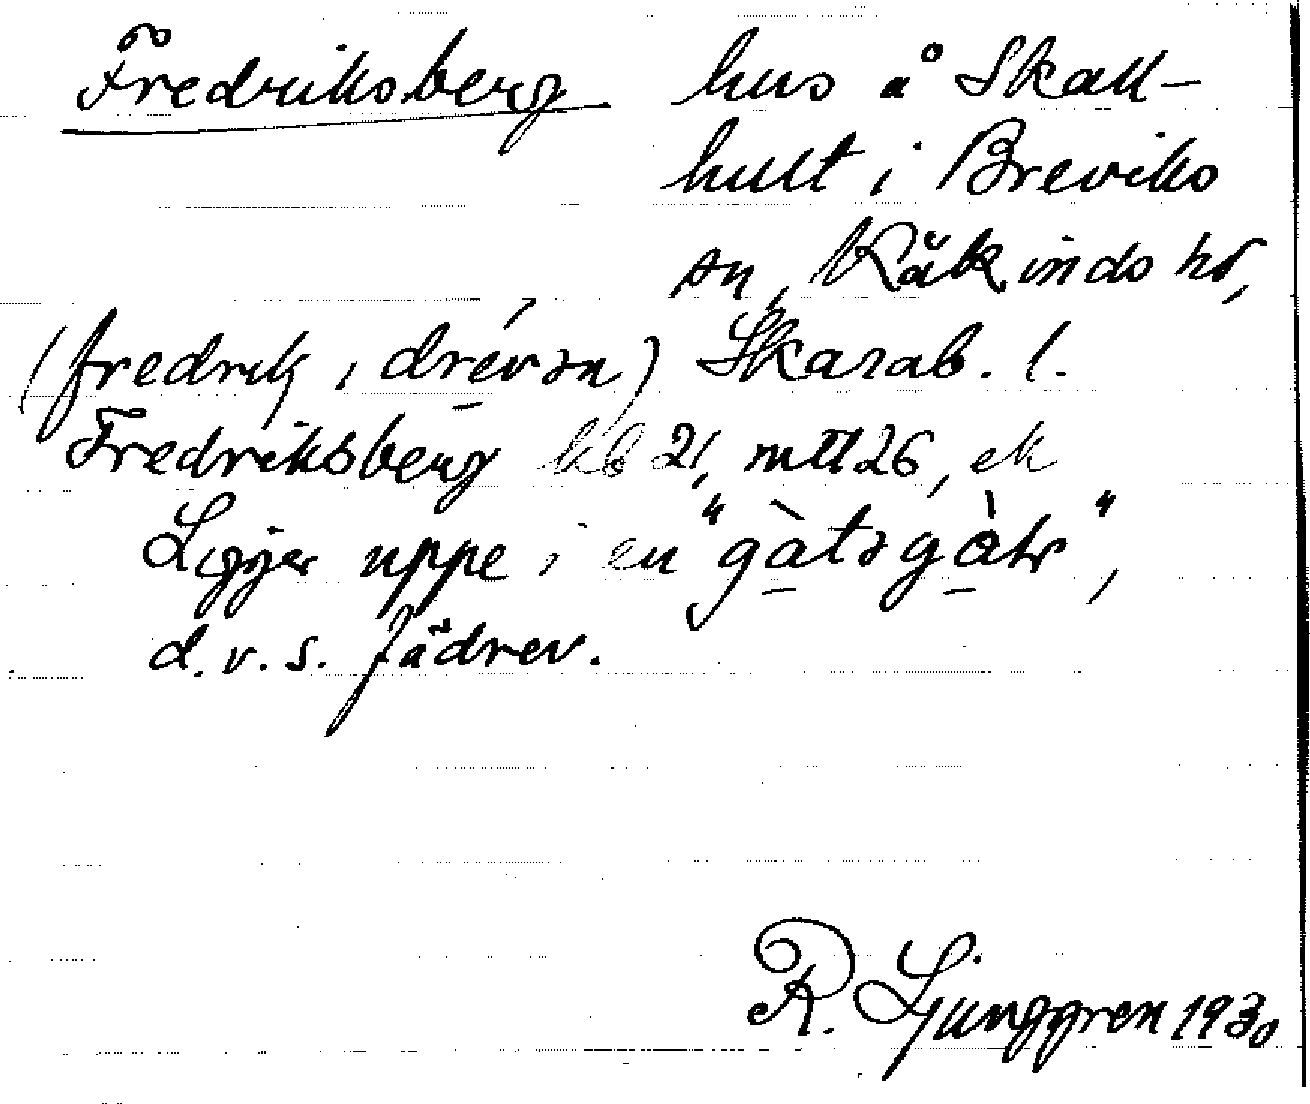 Fredriksberg hus å Skall-
hult i Breviks
sn, Kåkinds hd,
(fredrik i drévən) Skarab. l.
Fredriksberg kb 21, mtl 26, ek
Ligger uppe i en "gàtəgàtər",
d.v.s. fädrev.
R. Ljunggren 1930